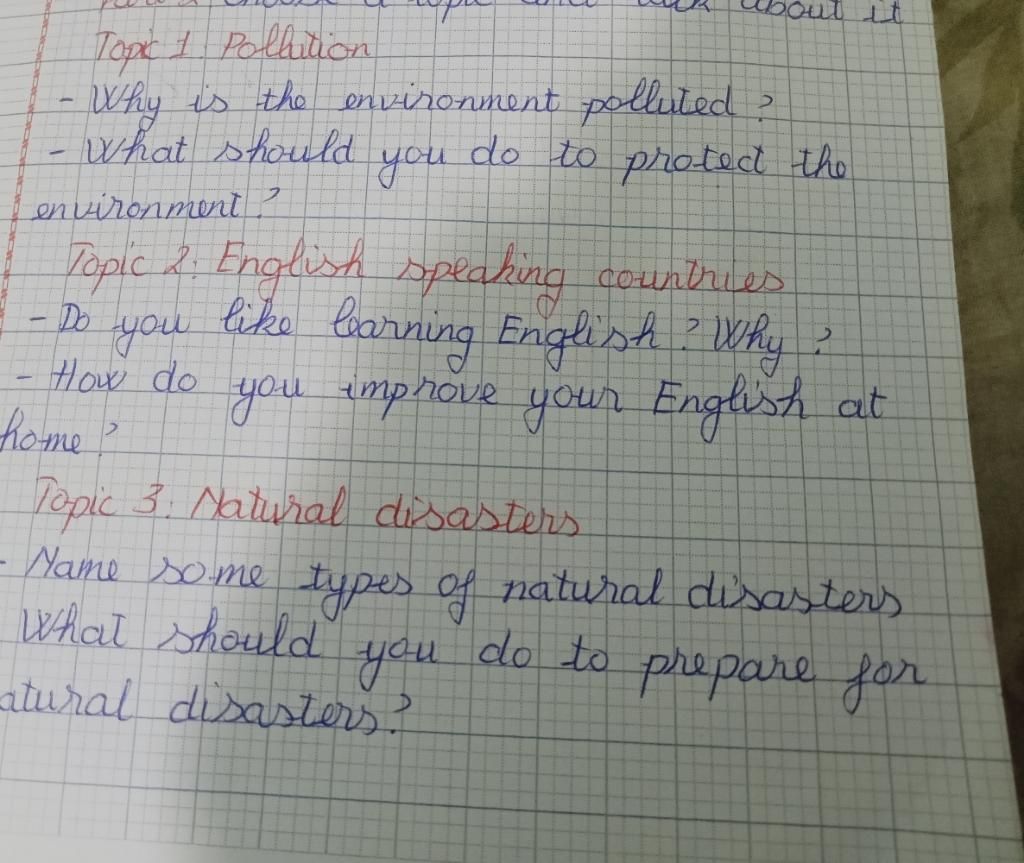 choose a topic and talk about it
Topic 1. Pollution
- Why is the environment polluted?
- What should you do to protect the
environment?
Topic 2: English speaking countries
- Do you like learning English? Why?
- How do you improve your English at
home?
Topic 3: Natural disasters
- Name some types of natural disasters
What should you do to prepare for
atural disasters?